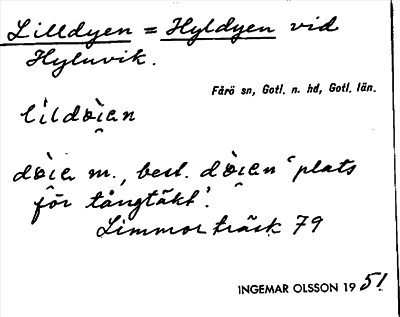 Lilldyen = Hyldyen vid
Hyluvik.
Fårö sn, Gotl. n. hd, Gotl. län.
lìldo̯i̯en
dò̯i̯e m., best. dò̯i̯en 'plats
för tångtäkt'.
Limmor träsk 79
INGEMAR OLSSON 1951